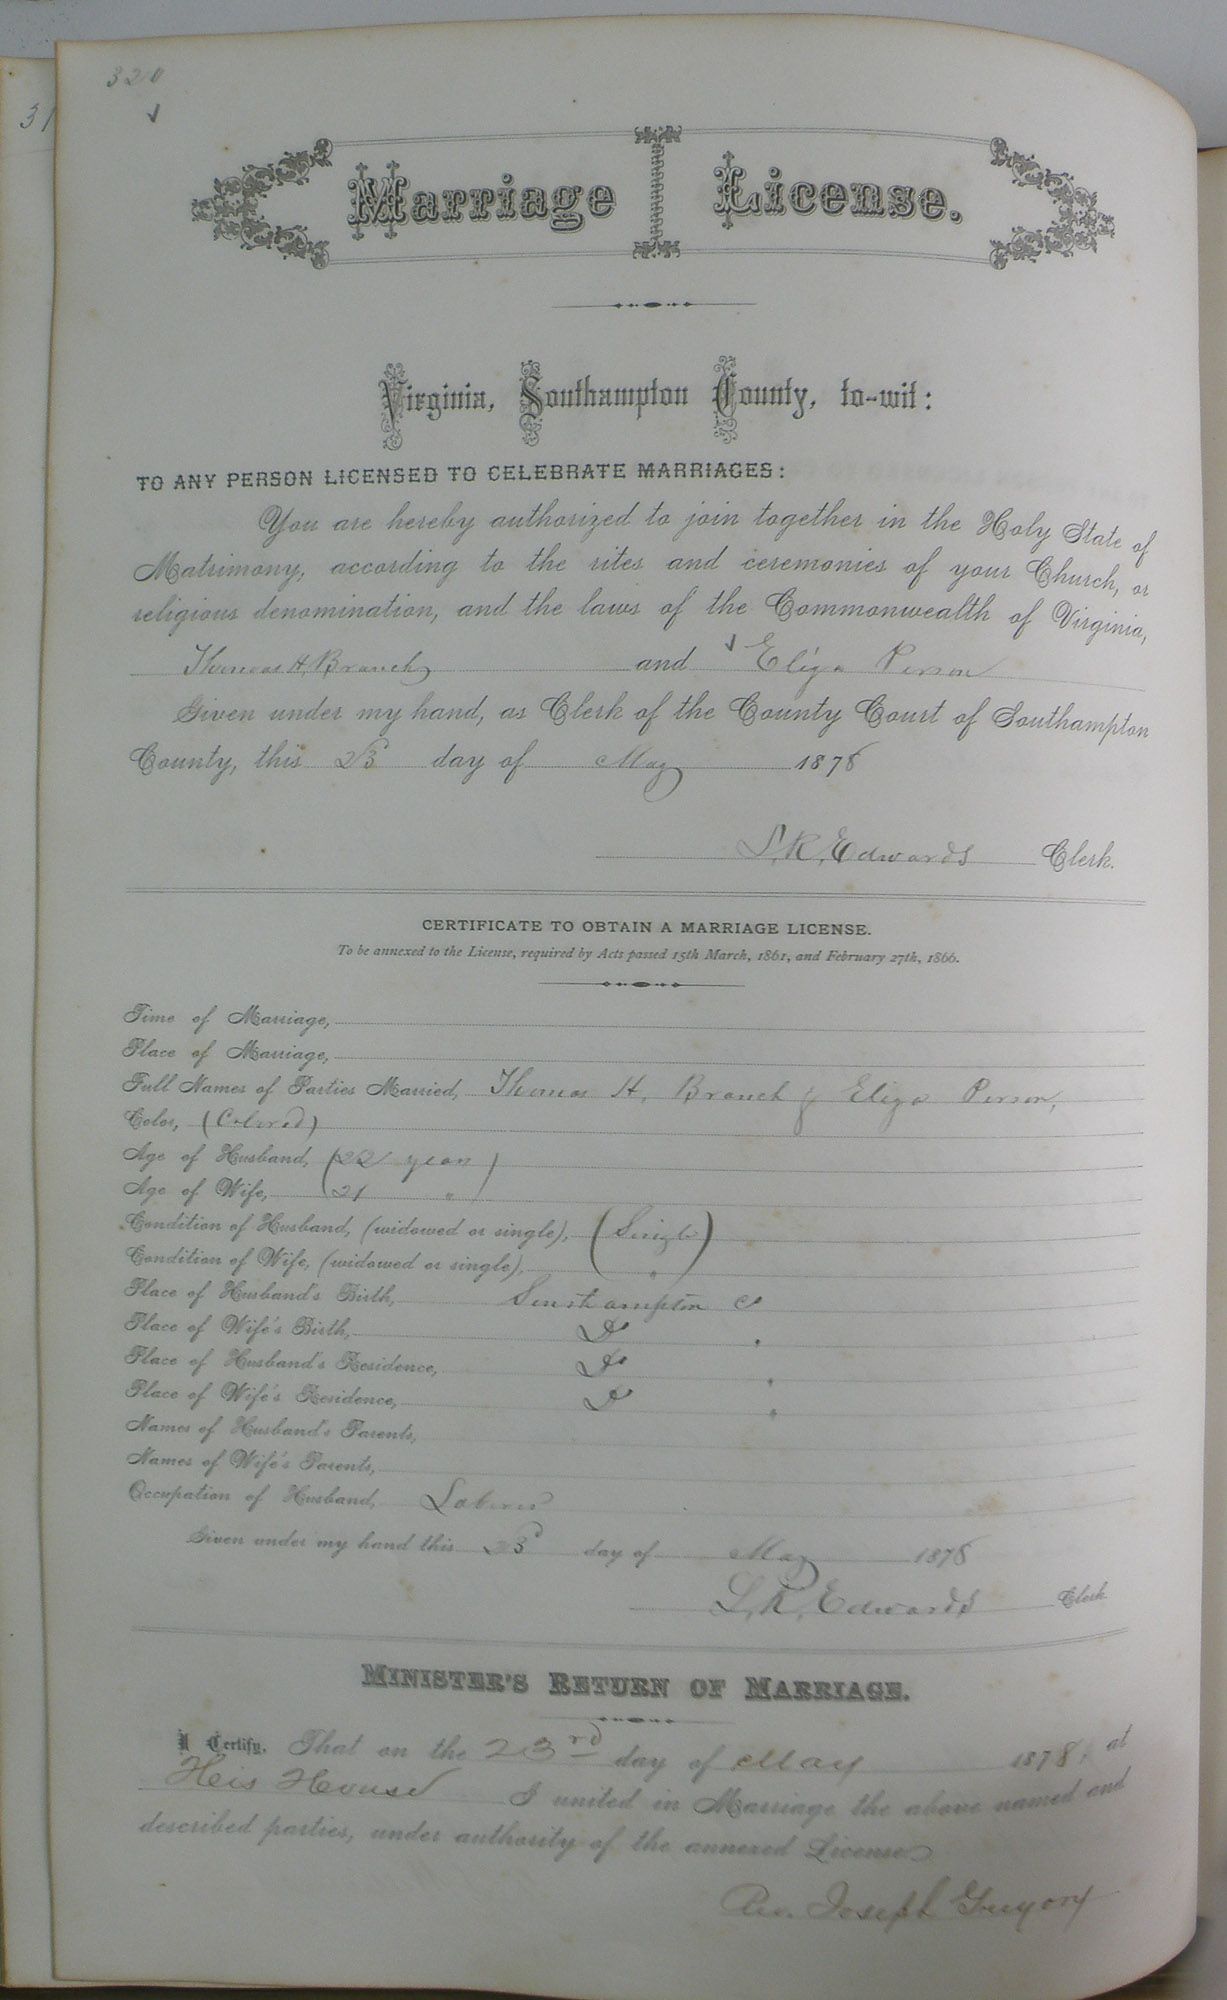 320
31
Marriage License.
Virginia, Southampton County, to-wit:
TO ANY PERSON LICENSED TO CELEBRATE MARRIAGES:
You are hereby authorized to join together in the Holy State of
Matrimony, according to the rites and ceremonies of your Church, or
religious denomination, and the laws of the Commonwealth of Virginia,
Thomas H. Branch and Eliza Person
Given under my hand, as Clerk of the County Court of Southampton
County, this 23 day of May 1878
L. R. Edwards Clerk.
CERTIFICATE TO OBTAIN A MARRIAGE LICENSE.
To be annexed to the License, required by Acts passed 15th March, 1861, and February 27th, 1866.
Time of Marriage,
Place of Marriage,
Full Names of Parties Married, Thomas H. Branch & Eliza Person,
Color, (Colored)
Age of Husband, (22 years)
Age of Wife, 21 "
Condition of Husband, (widowed or single), (Single)
Condition of Wife, (widowed or single), "
Place of Husband's Birth, Southampton Co
Place of Wife's Birth, Do "
Place of Husband's Residence, Do "
Place of Wife's Residence, Do "
Names of Husband's Parents,
Names of Wife's Parents,
Occupation of Husband, Laborer
Given under my hand this 23 day of May 1878
L. R. Edwards Clerk
MINISTER'S RETURN OF MARRIAGE.
I Certify, That on the 23rd day of May 1878, at
Heis House I united in Marriage the above named and
described parties, under authority of the annexed License.
Rev. Joseph Gregory